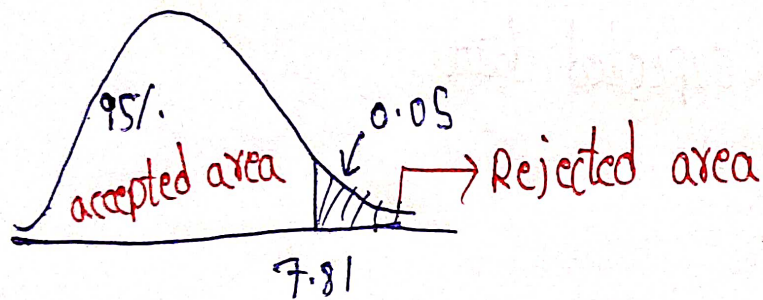 95%.
0.05
accepted area
Rejected area
7.81